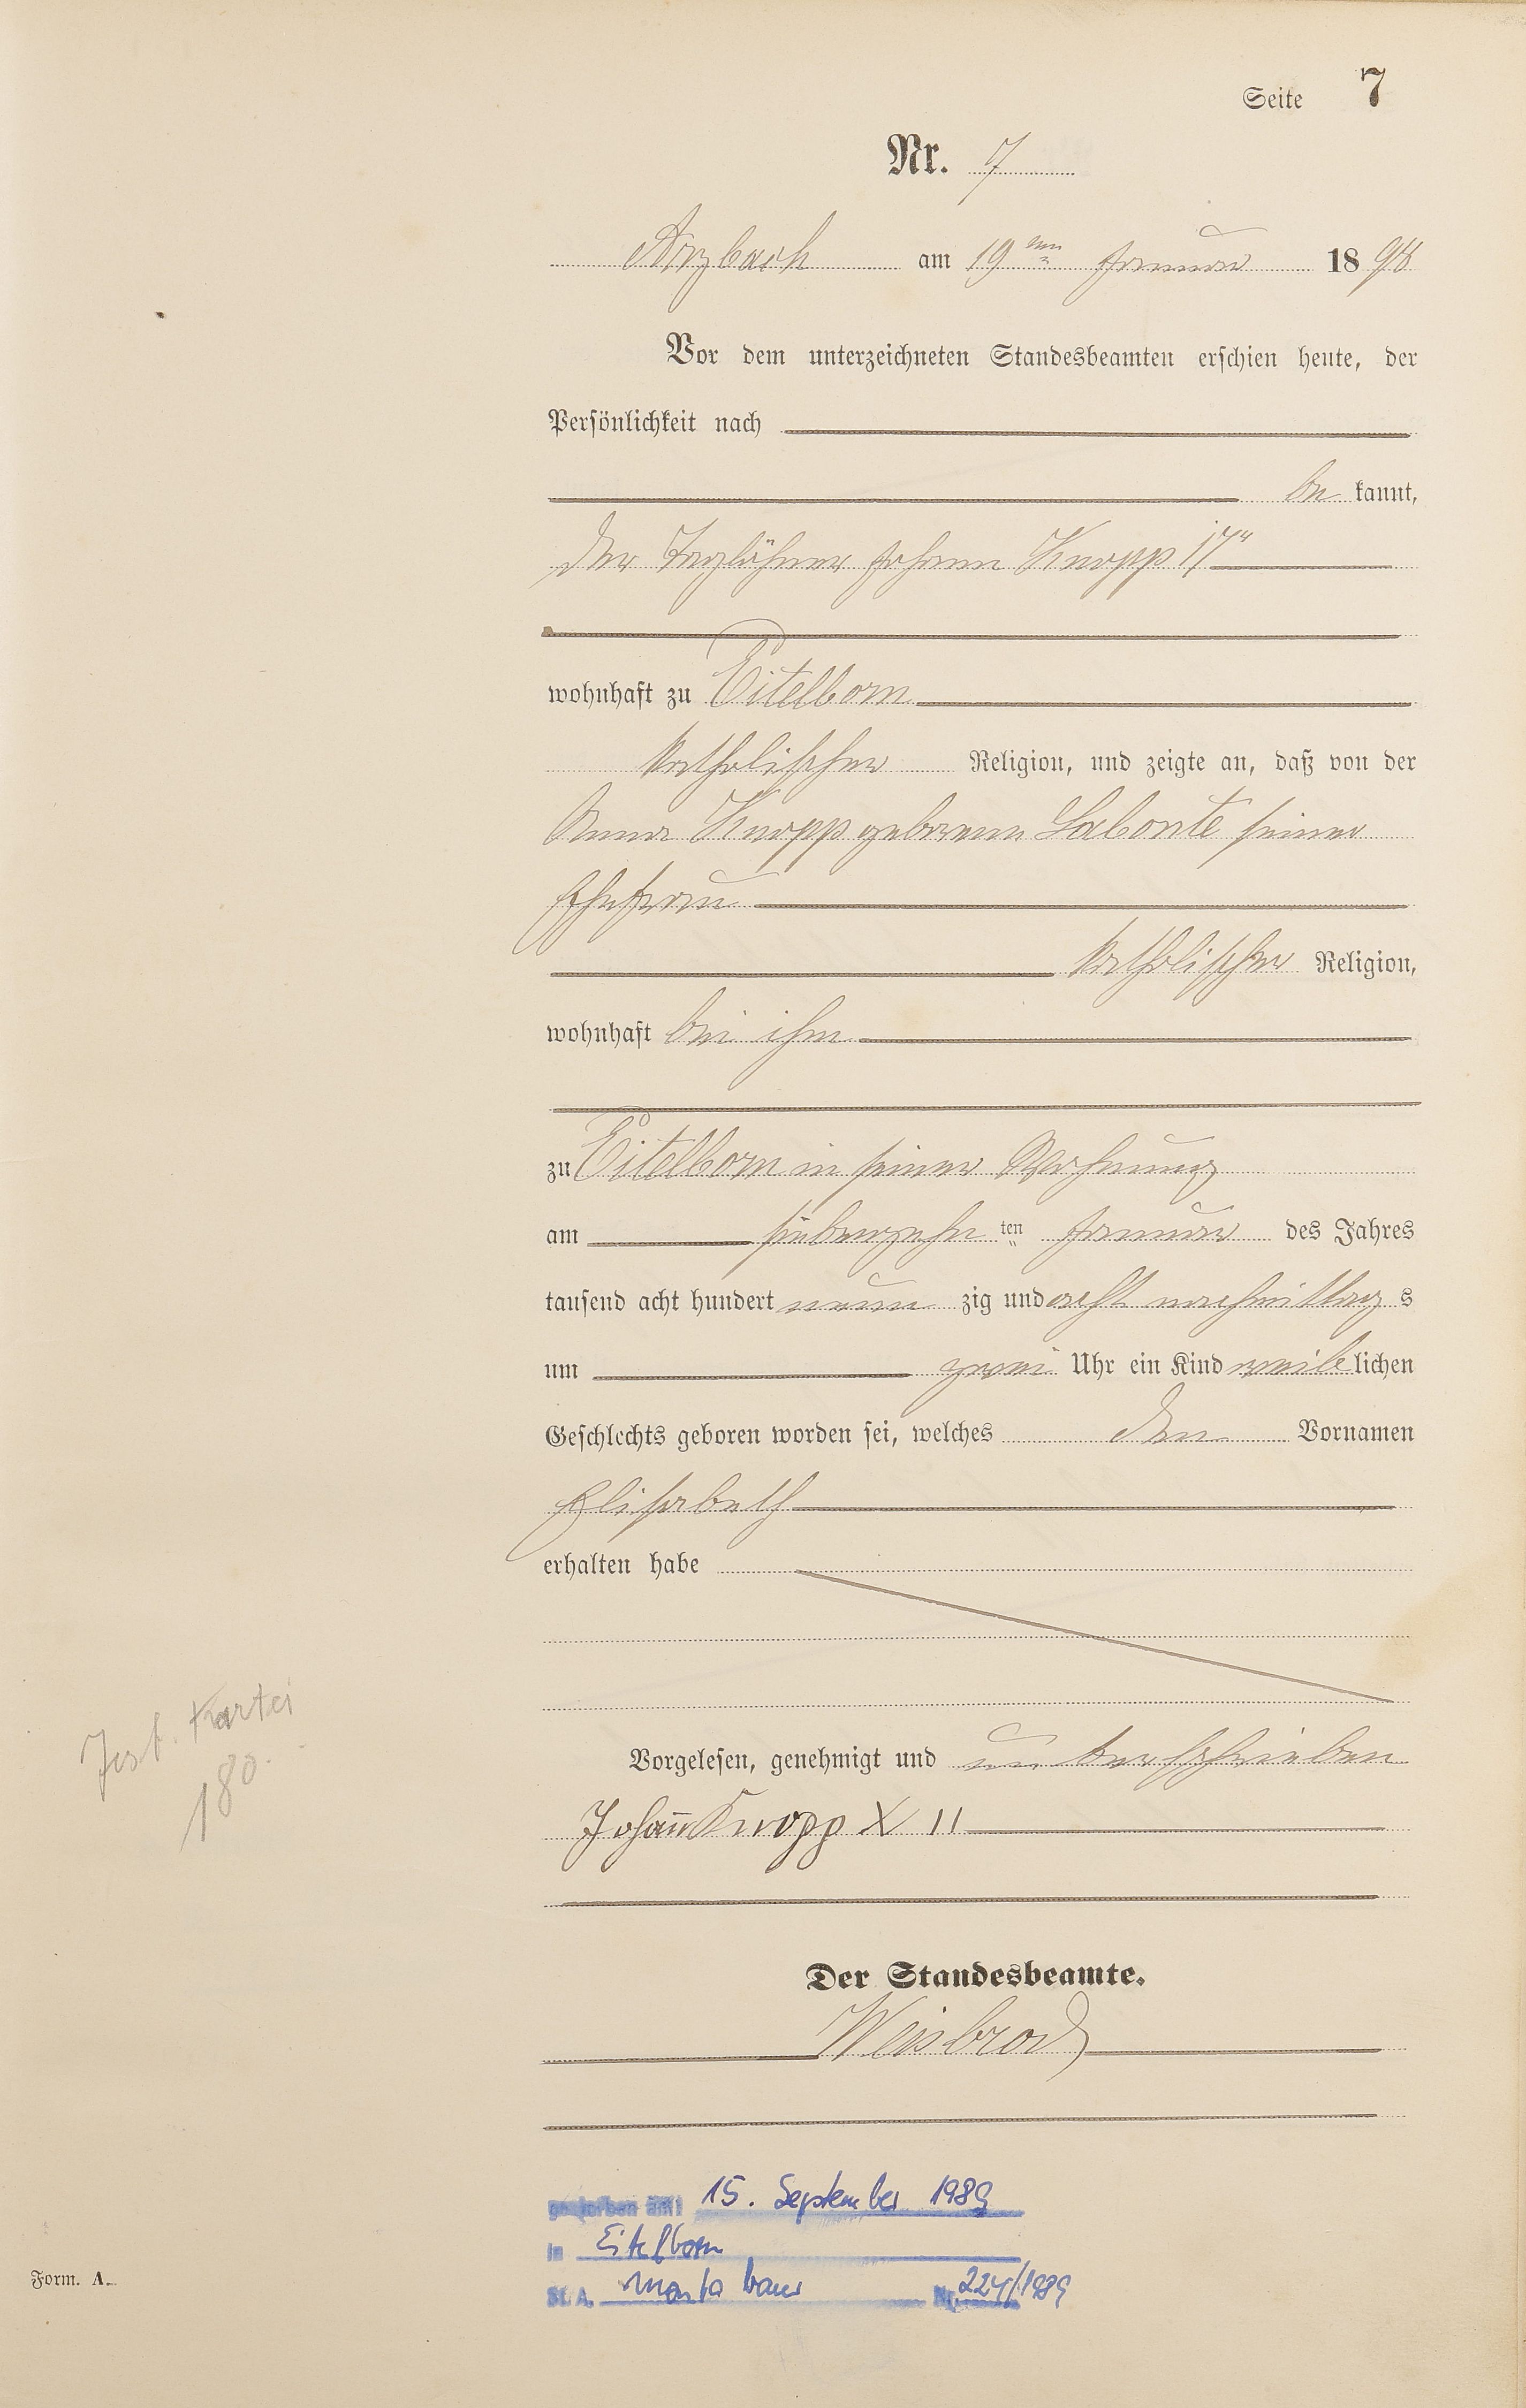 Seite 7
Nr. 7
Arzbach am 19ten Januar 1898
Vor dem unterzeichneten Standesbeamten erschien heute, der
Persönlichkeit nach
be kannt,
der Taglöhner Johann Knopp
wohnhaft zu Eitelborn
katholischer Religion, und zeigte an, daß von der
Anna Knopp geborene Labonte seiner
Ehefrau
katholischer Religion,
wohnhaft bei ihm
zu Eitelborn in seiner Wohnung
am siebenzehn ten Januar des Jahres
tausend acht hundert neun zig und acht nachmittag s
um zwei Uhr ein Kind weib lichen
Geschlechts geboren worden sei, welches den Vornamen
Elisabeth
erhalten habe
Kartei
180.
Vorgelesen, genehmigt und unterschrieben
Johann Knopp X II
Der Standesbeamte.
Weisbrod
gestorben am: 15. September 1989
in Eitelborn
St. A. Montabaur Nr. 224/1989
Form. A.